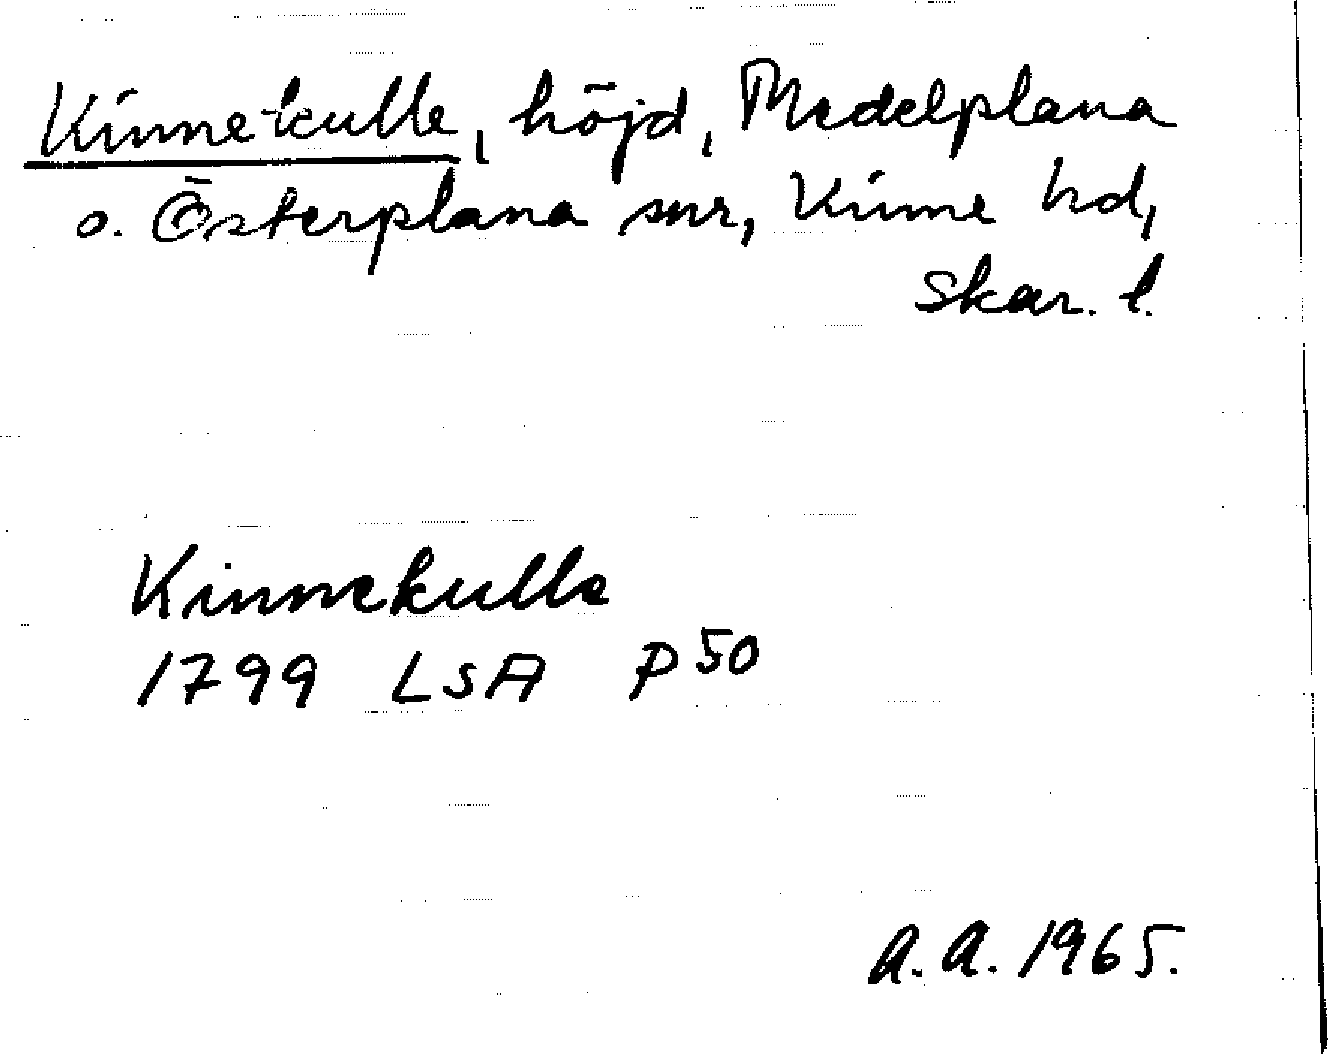 Kinnekulle, höjd, Medelplana
o. Österplana snr, Kinne hd,
Skar. l.
Kinnekulle
1799 LSA P50
A.A. 1965.